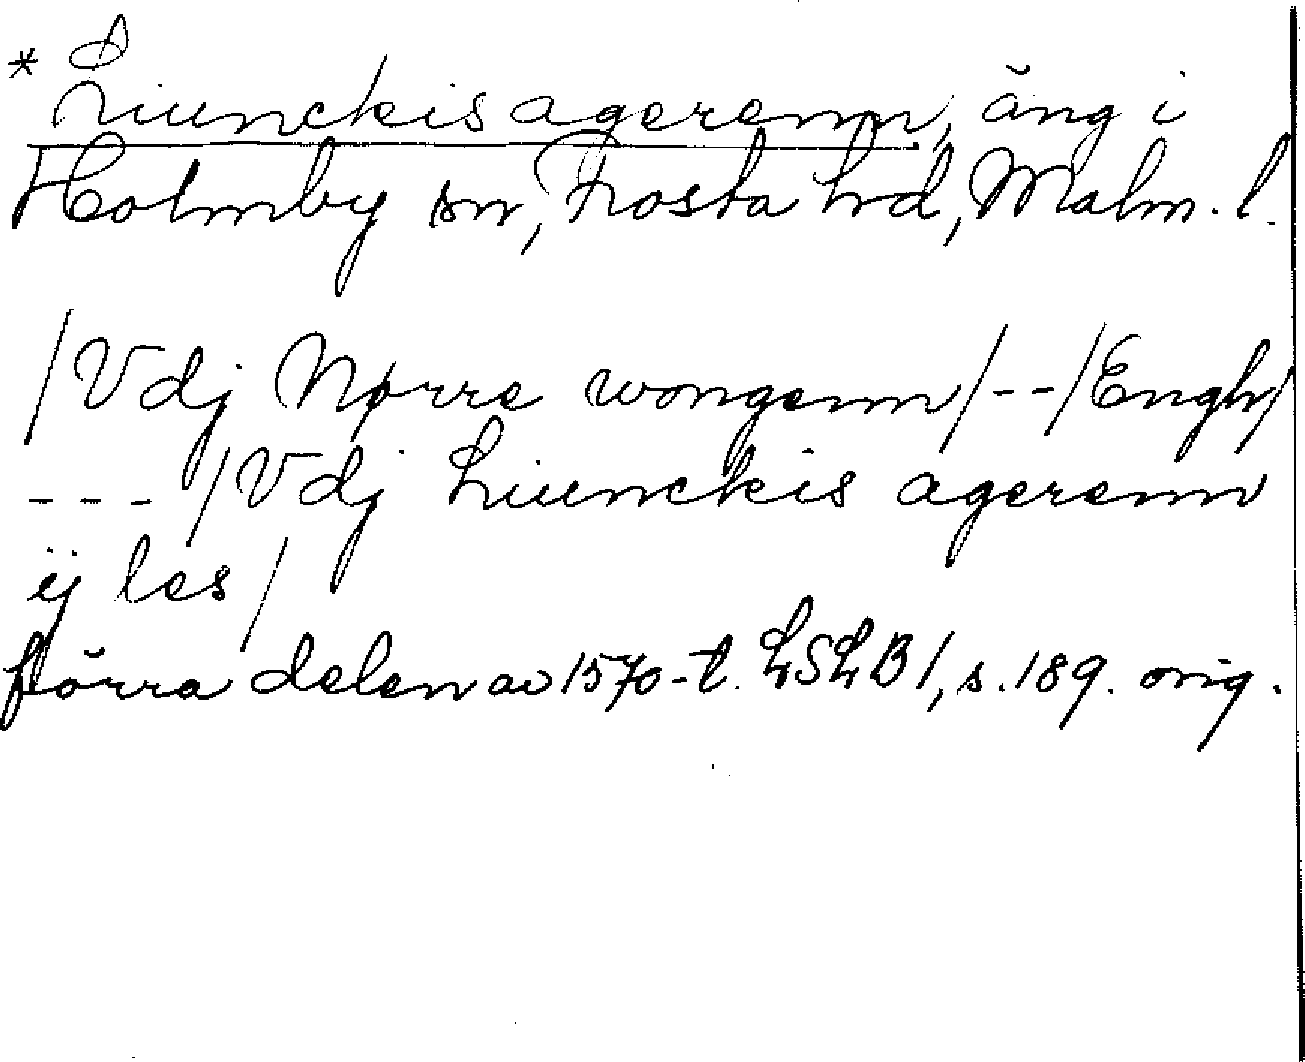 * Liunckis agerenn, äng i
Holmby sn, Frosta hrd, Malm. l.
/Vdj Nørre wongenn/--/Engh/
--- /Vdj Liunckis agerenn
ÿ les/
förra delen av 1570-t. LSLB1, s. 189. orig.